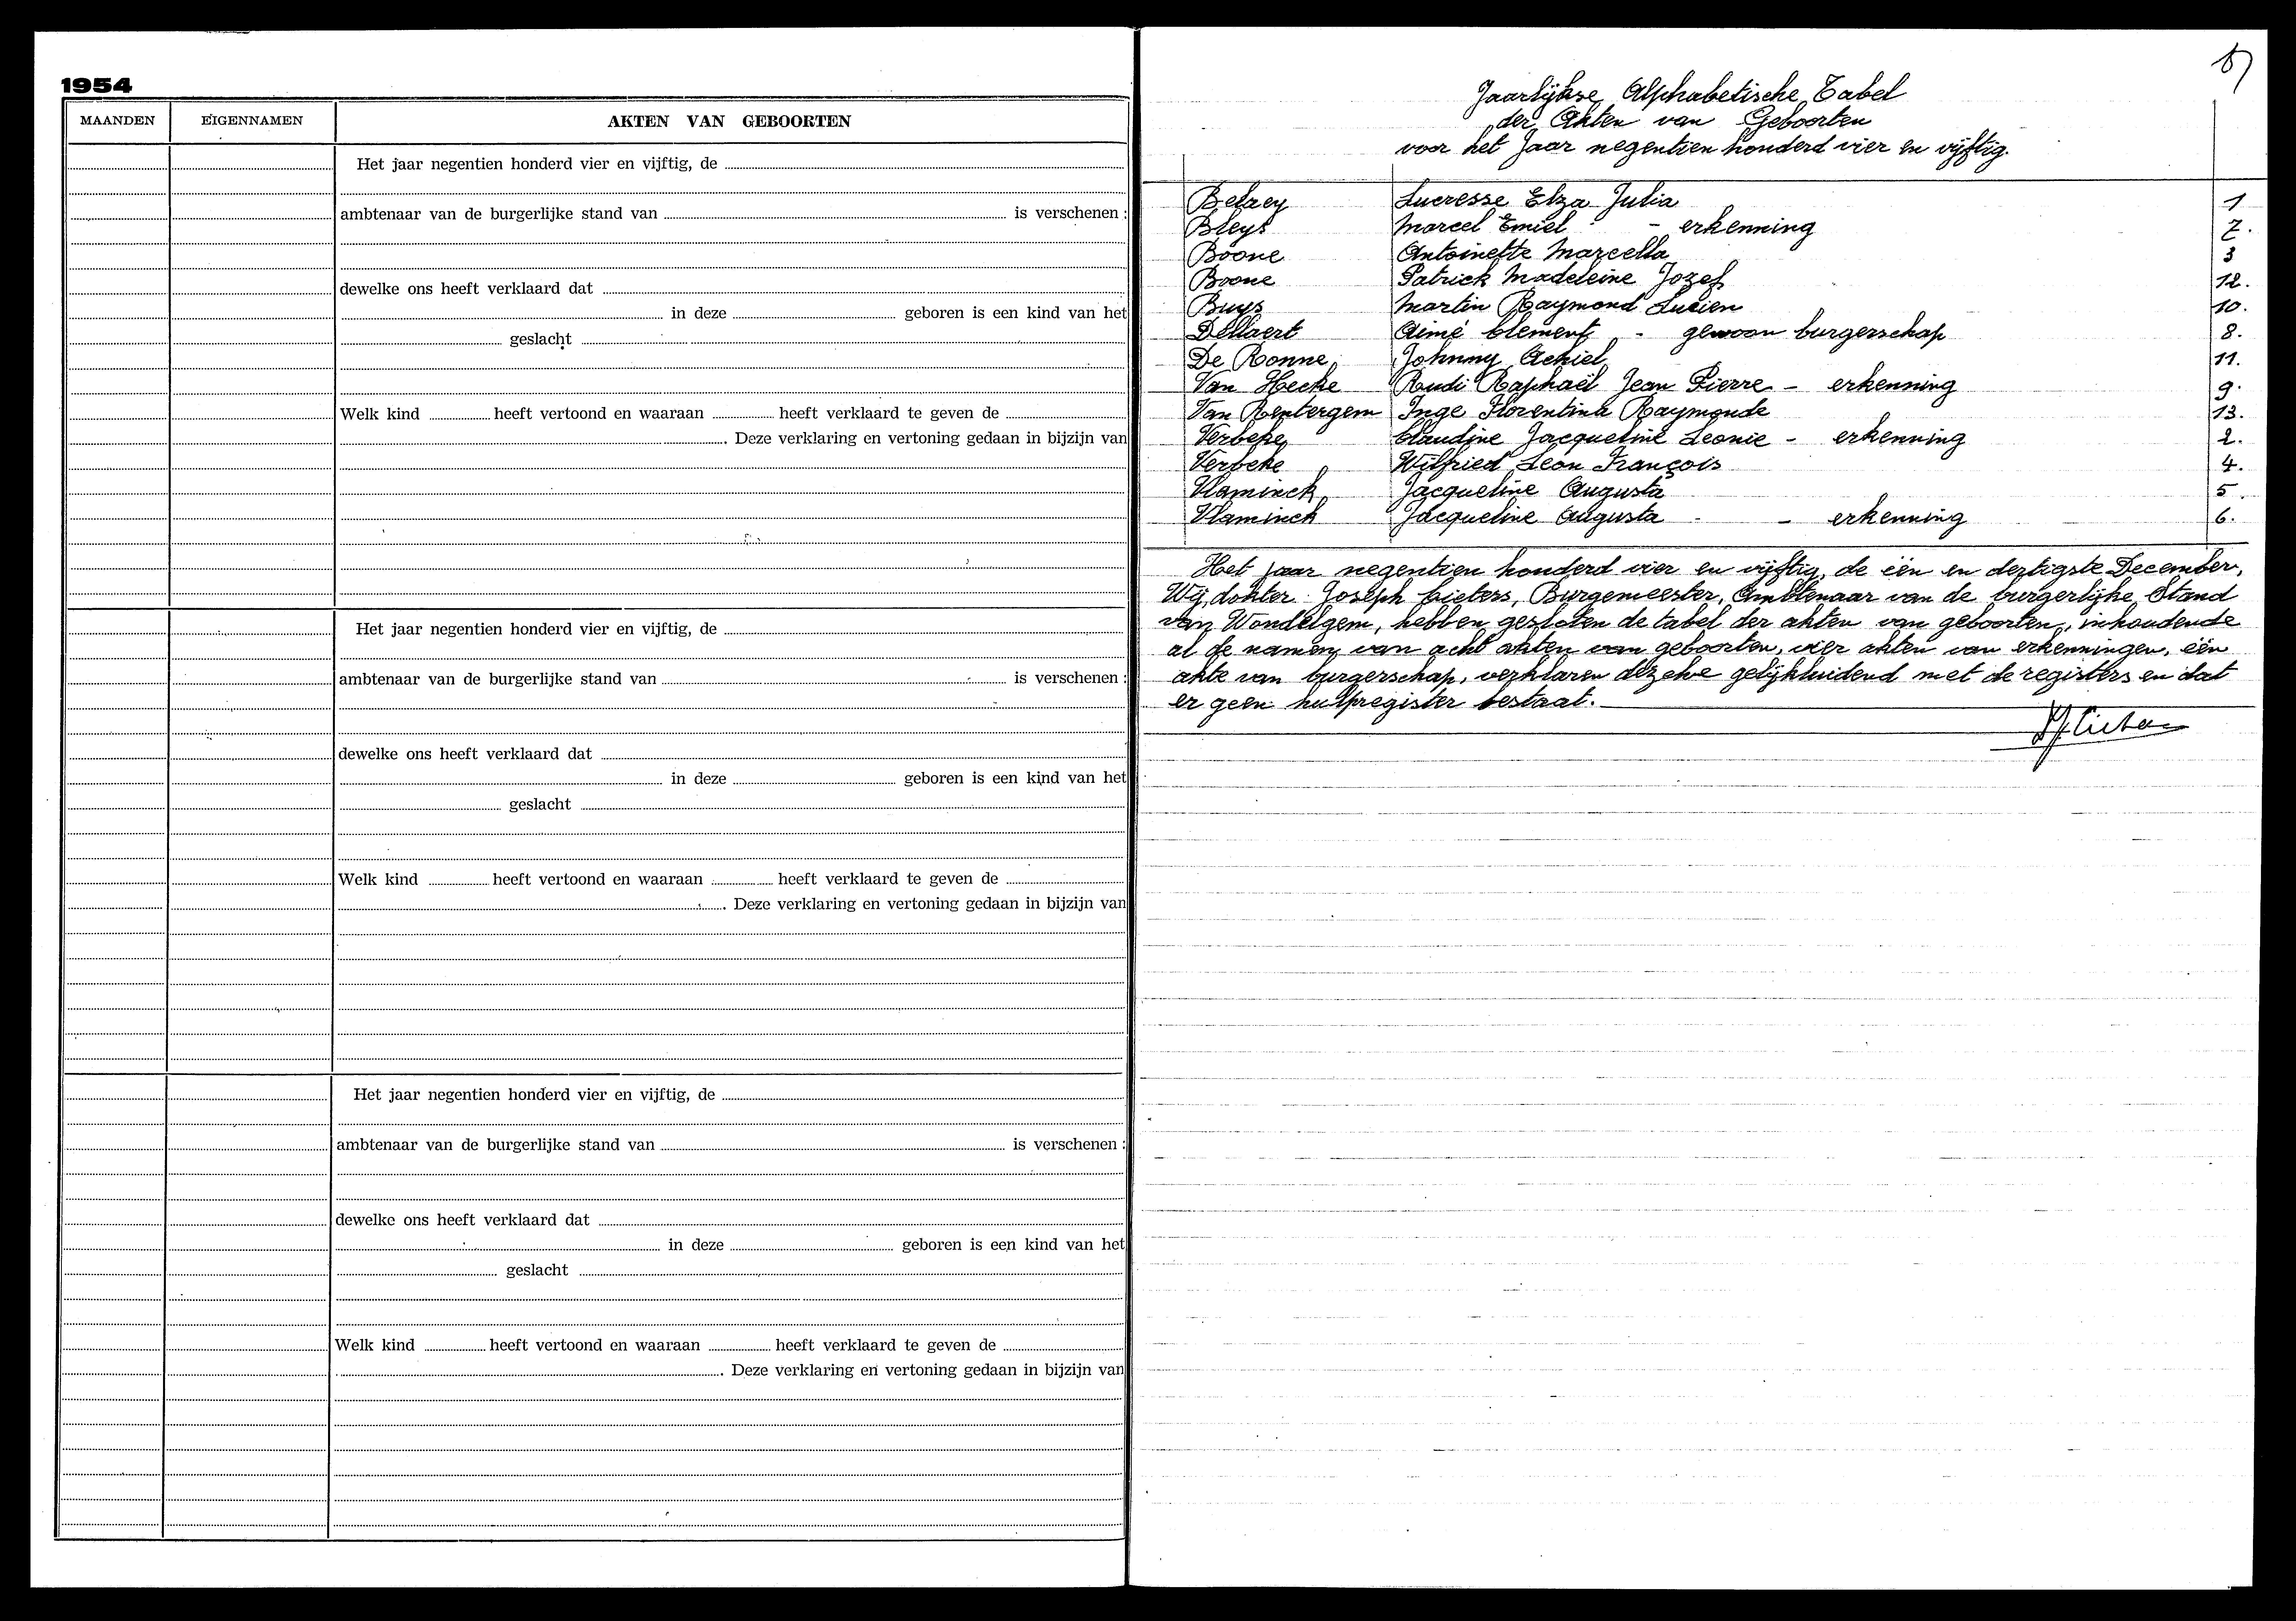 1954
MAANDEN EIGENNAMEN AKTEN VAN GEBOORTEN
Het jaar negentien honderd vier en vijftig, de
ambtenaar van de burgerlijke stand van is verschenen :
dewelke ons heeft verklaard dat
in deze geboren is een kind van het
geslacht
Welk kind heeft vertoond en waaraan heeft verklaard te geven de
. Deze verklaring en vertoning gedaan in bijzijn van
Het jaar negentien honderd vier en vijftig, de
ambtenaar van de burgerlijke stand van is verschenen :
dewelke ons heeft verklaard dat
in deze geboren is een kind van het
geslacht
Welk kind heeft vertoond en waaraan heeft verklaard te geven de
. Deze verklaring en vertoning gedaan in bijzijn van
Het jaar negentien honderd vier en vijftig, de
ambtenaar van de burgerlijke stand van is verschenen :
dewelke ons heeft verklaard dat
in deze geboren is een kind van het
geslacht
Welk kind heeft vertoond en waaraan heeft verklaard te geven de
. Deze verklaring en vertoning gedaan in bijzijn van
Jaarlijkse Alphabetische Tabel
der Akten van Geboorten
voor het Jaar negentien honderd vier en vijftig.
Lucresse Elza Julia 1
Bleys Marcel Emiel - erkenning 7.
Boone Antoinette Marcella 3
Boone Patrick Madeleine Jozef 12.
Buys Martin Raymond Lucien 10.
Dellaert Aimé Clement - gewoon burgerschap 8.
De Ronne Johnny Achiel 11.
Van Hecke Rudi Raphaël Jean Pierre - erkenning 9.
Van Renterghem Inge Florentina Raymonde 13.
Verbeke Claudine Jacqueline Leonie - erkenning 2.
Verbeke Wilfried Leon François 4.
Vlaminck Jacqueline Augusta 5.
Vlaminck Jacqueline Augusta - erkenning 6.
Het jaar negentien honderd vier en vijftig, de één en dertigste December,
Wij, dokter Joseph Cieters, Burgemeester, Ambtenaar van de burgerlijke Stand
van Wondelgem, hebben gesloten de tabel der akten van geboorten, inhoudende
al de namen van acht akten van geboorten, vier akten van erkenningen, één
akte van burgerschap, verklaren dezelve gelijkluidend met de registers en dat
er geen hulpregister bestaat.